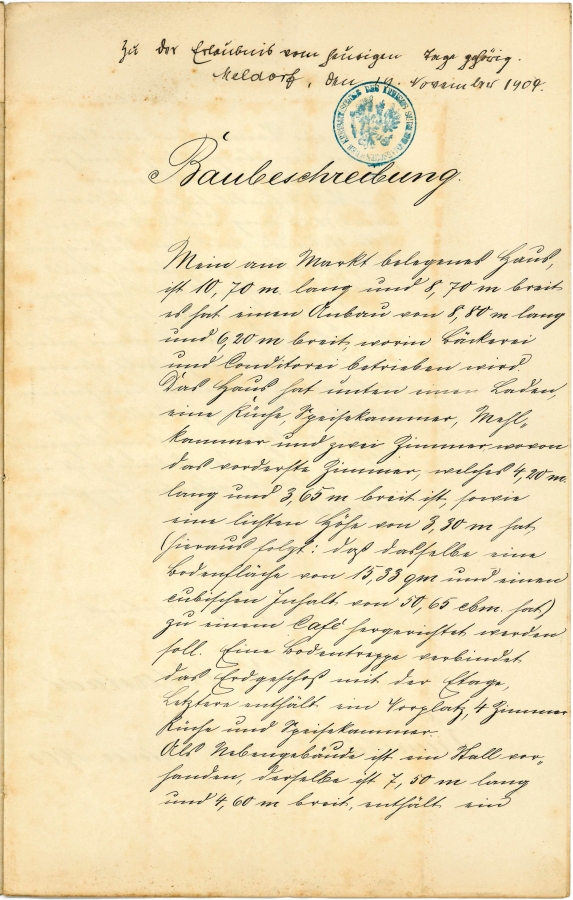 Zu der Erlaubnis vom heutigen Tage gehörig.
Meldorf, den 19. November 1909.
Baubeschreibung.
Mein am Markt belegenes Haus,
ist 10,70 m lang und 8,70 m breit
es hat einen Anbau von 8,80 m lang
und 6,20 m breit worin Bäckerei
und Conditorei betrieben wird
Das Haus hat unten einen Laden,
eine Küche, Speisekammer, Mehl-
kammer und zwei Zimmer, wovon
das vorderste Zimmer, welches 4,20 m
lang und 3,65 m breit ist, sowie
eine lichten Höhe von 3,30 m hat,
(hieraus folgt: daß dasselbe eine
Bodenfläche von 15,33 qm und einen
cubischen Inhalt von 50,65 cbm. hat)
zu einem Café hergerichtet werden
soll. Eine Bodentreppe verbindet
das Erdgeschoß mit der Etage,
Letztere enthält ein Vorplatz, 4 Zimmer
Küche und Speisekammer.
Als Nebengebäude ist ein Stall vor-
handen, derselbe ist 7,50 m lang
und 4,60 m breit, enthält ein